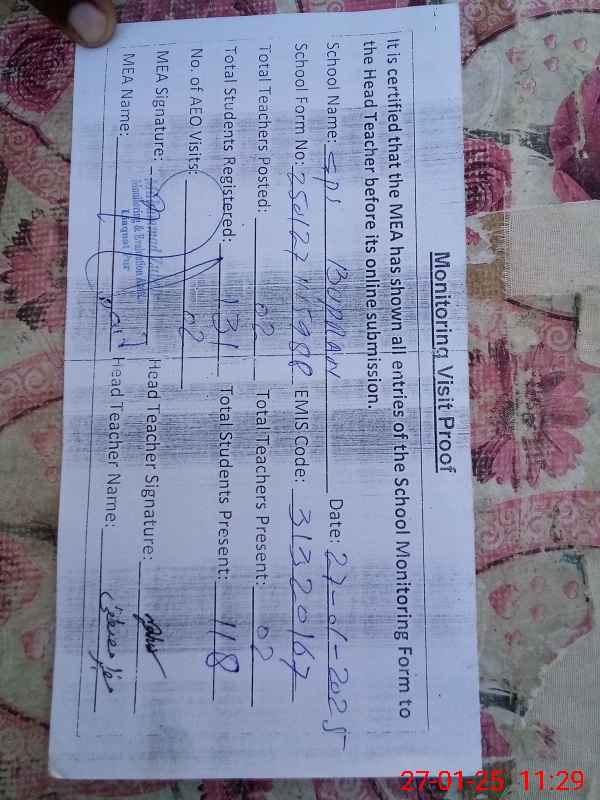 Monitoring Visit Proof
It is certified that the MEA has shown all entries of the School Monitoring Form to
the Head Teacher before its online submission.
School Name: GPS BUDRAN Date: 27-01-2025
School Form No: 250127 EMIS Code: 31320167
Total Teachers Posted: 02 Total Teachers Present: 02
Total Students Registered: 131 Total Students Present: 118
No. of AEO Visits: 02
MEA Signature: Head Teacher Signature:
Monitoring & Evaluation Asstt.
Liaquat Pur
MEA Name: Head Teacher Name:
27-01-25 11:29